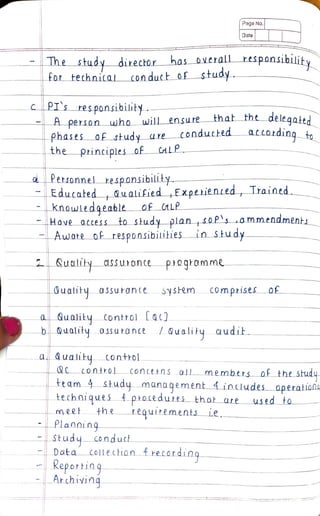 Page No.
Date
- The study director has overall responsibility
for technical conduct of study.
c PI's responsibility.
- A person who will ensure that the delegated
phases of study are conducted according to
the principles of GLP.
d Personnel responsibility.
- Educated, Qualified, Experienced, Trained.
- Knowledgeable of GLP
- Have access to study plan, SOP's, ammendments
- Aware of responsibilities in study
2. Quality assurance programme
Quality assurance system comprises of
a Quality control [QC]
b. Quality assurance / Quality audit.
a. Quality control
QC control concerns all members of the study
team & study management & includes operational
techniques & procedures that are used to
meet the requirements ie.
- Planning
- Study conduct
- Data collection & recording
- Reporting
- Archiving